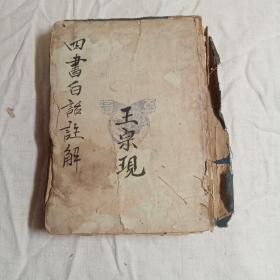 四書白話註解
王宗現